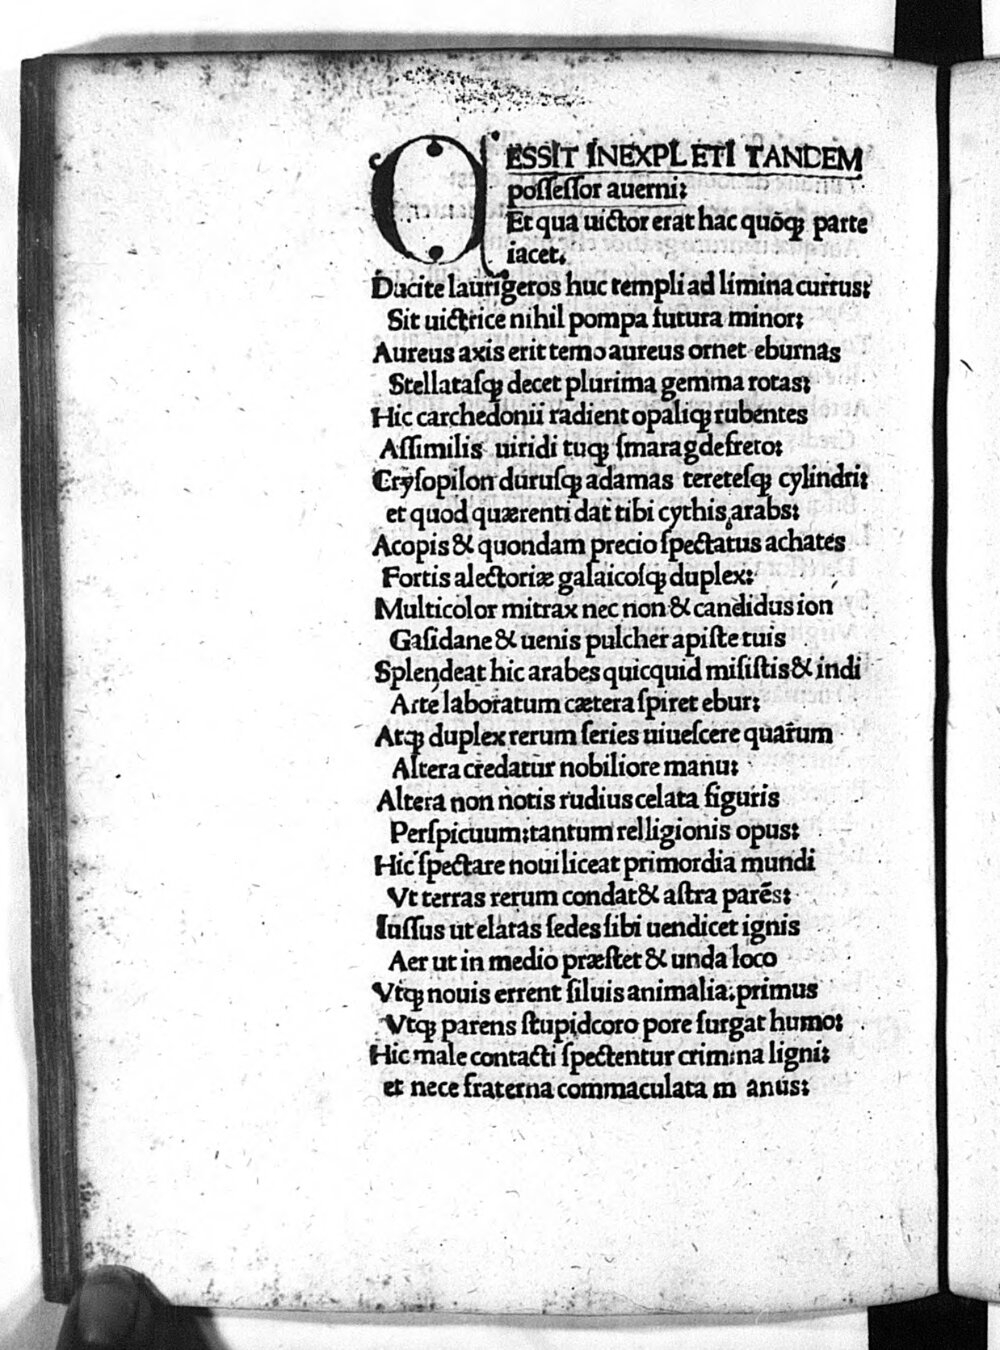 CESSIT INEXPLETI TANDEM
poſſeſſor auerni:
Et qua uictor erat hac quōqꝫ parte
iacet.
Ducite laurigeros huc templi ad limina currus:
Sit uictrice nihil pompa futura minor:
Aureus axis erit temo aureus ornet eburnas
Stellataſqꝫ decet plurima gemma rotas:
Hic carchedonii radient opaliqꝫ rubentes
Aſſimilis uiridi tuqꝫ ſmaragde freto:
Cryſopilon duruſqꝫ adamas tereteſqꝫ cylindri:
et quod quærenti dat tibi cythis arabs:
Acopis & quondam precio ſpectatus achates
Fortis alectoriæ galaicoſqꝫ duplex:
Multicolor mitrax nec non & candidus ion
Gaſidane & uenis pulcher apiſte tuis
Splendeat hic arabes quicquid miſiſtis & indi
Arte laboratum cætera ſpiret ebur:
Atqꝫ duplex rerum ſeries uiueſcere quarum
Altera credatur nobiliore manu:
Altera non notis rudius celata figuris
Perſpicuum: tantum relligionis opus:
Hic ſpectare noui liceat primordia mundi
Vt terras rerum condat & aſtra parēs:
Iuſſus ut elatas ſedes ſibi uendicet ignis
Aer ut in medio præſtet & unda loco
Vtqꝫ nouis errent ſiluis animalia: primus
Vtqꝫ parens ſtupidcoro pore ſurgat humo:
Hic male contacti ſpectentur crimina ligni:
et nece fraterna commaculata m anus: